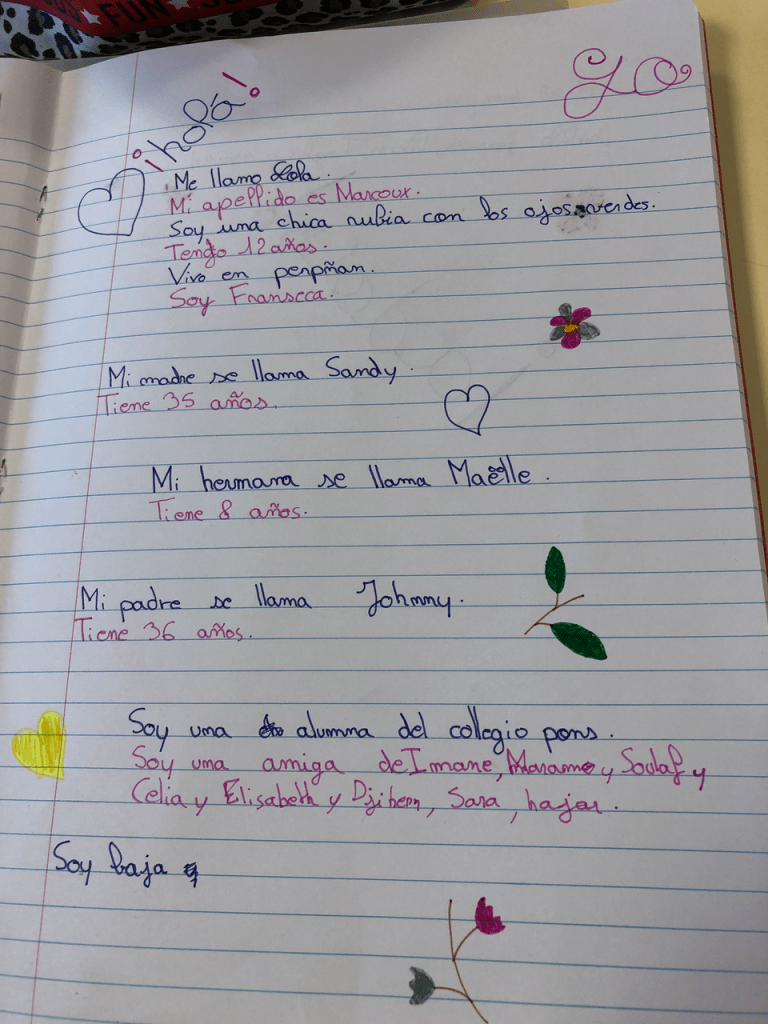 FUN
YO
¡hola!
Me llamo Lola.
Mi apellido es Marcoux.
Soy una chica rubia con los ojos verdes.
Tengo 12 años.
Vivo en perpñan.
Soy Franseca.
Mi madre se llama Sandy.
Tiene 35 años.
Mi hermana se llama Maëlle.
Tiene 8 años.
Mi padre se llama Johnny.
Tiene 36 años.
Soy una alumna del collegio pons.
Soy una amiga de Imane, y Soulaf y
Celia y Elisabeth y Djihenn, Sara, hajar.
Soy baja